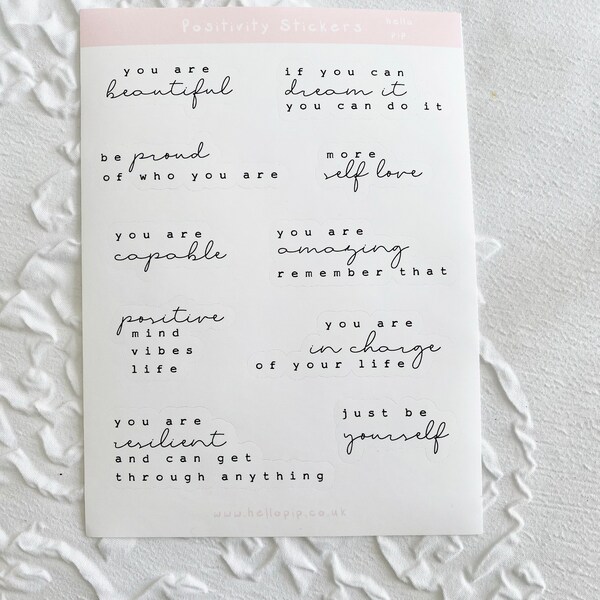 Positivity Stickers
hello
pip
you are
beautiful
if you can
dream it
you can do it
be proud
of who you are
more
self love
you are
capable
you are
amazing
remember that
positive
mind
vibes
life
you are
in charge
of your life
you are
resilient
and can get
through anything
just be
yourself
www.hellopip.co.uk